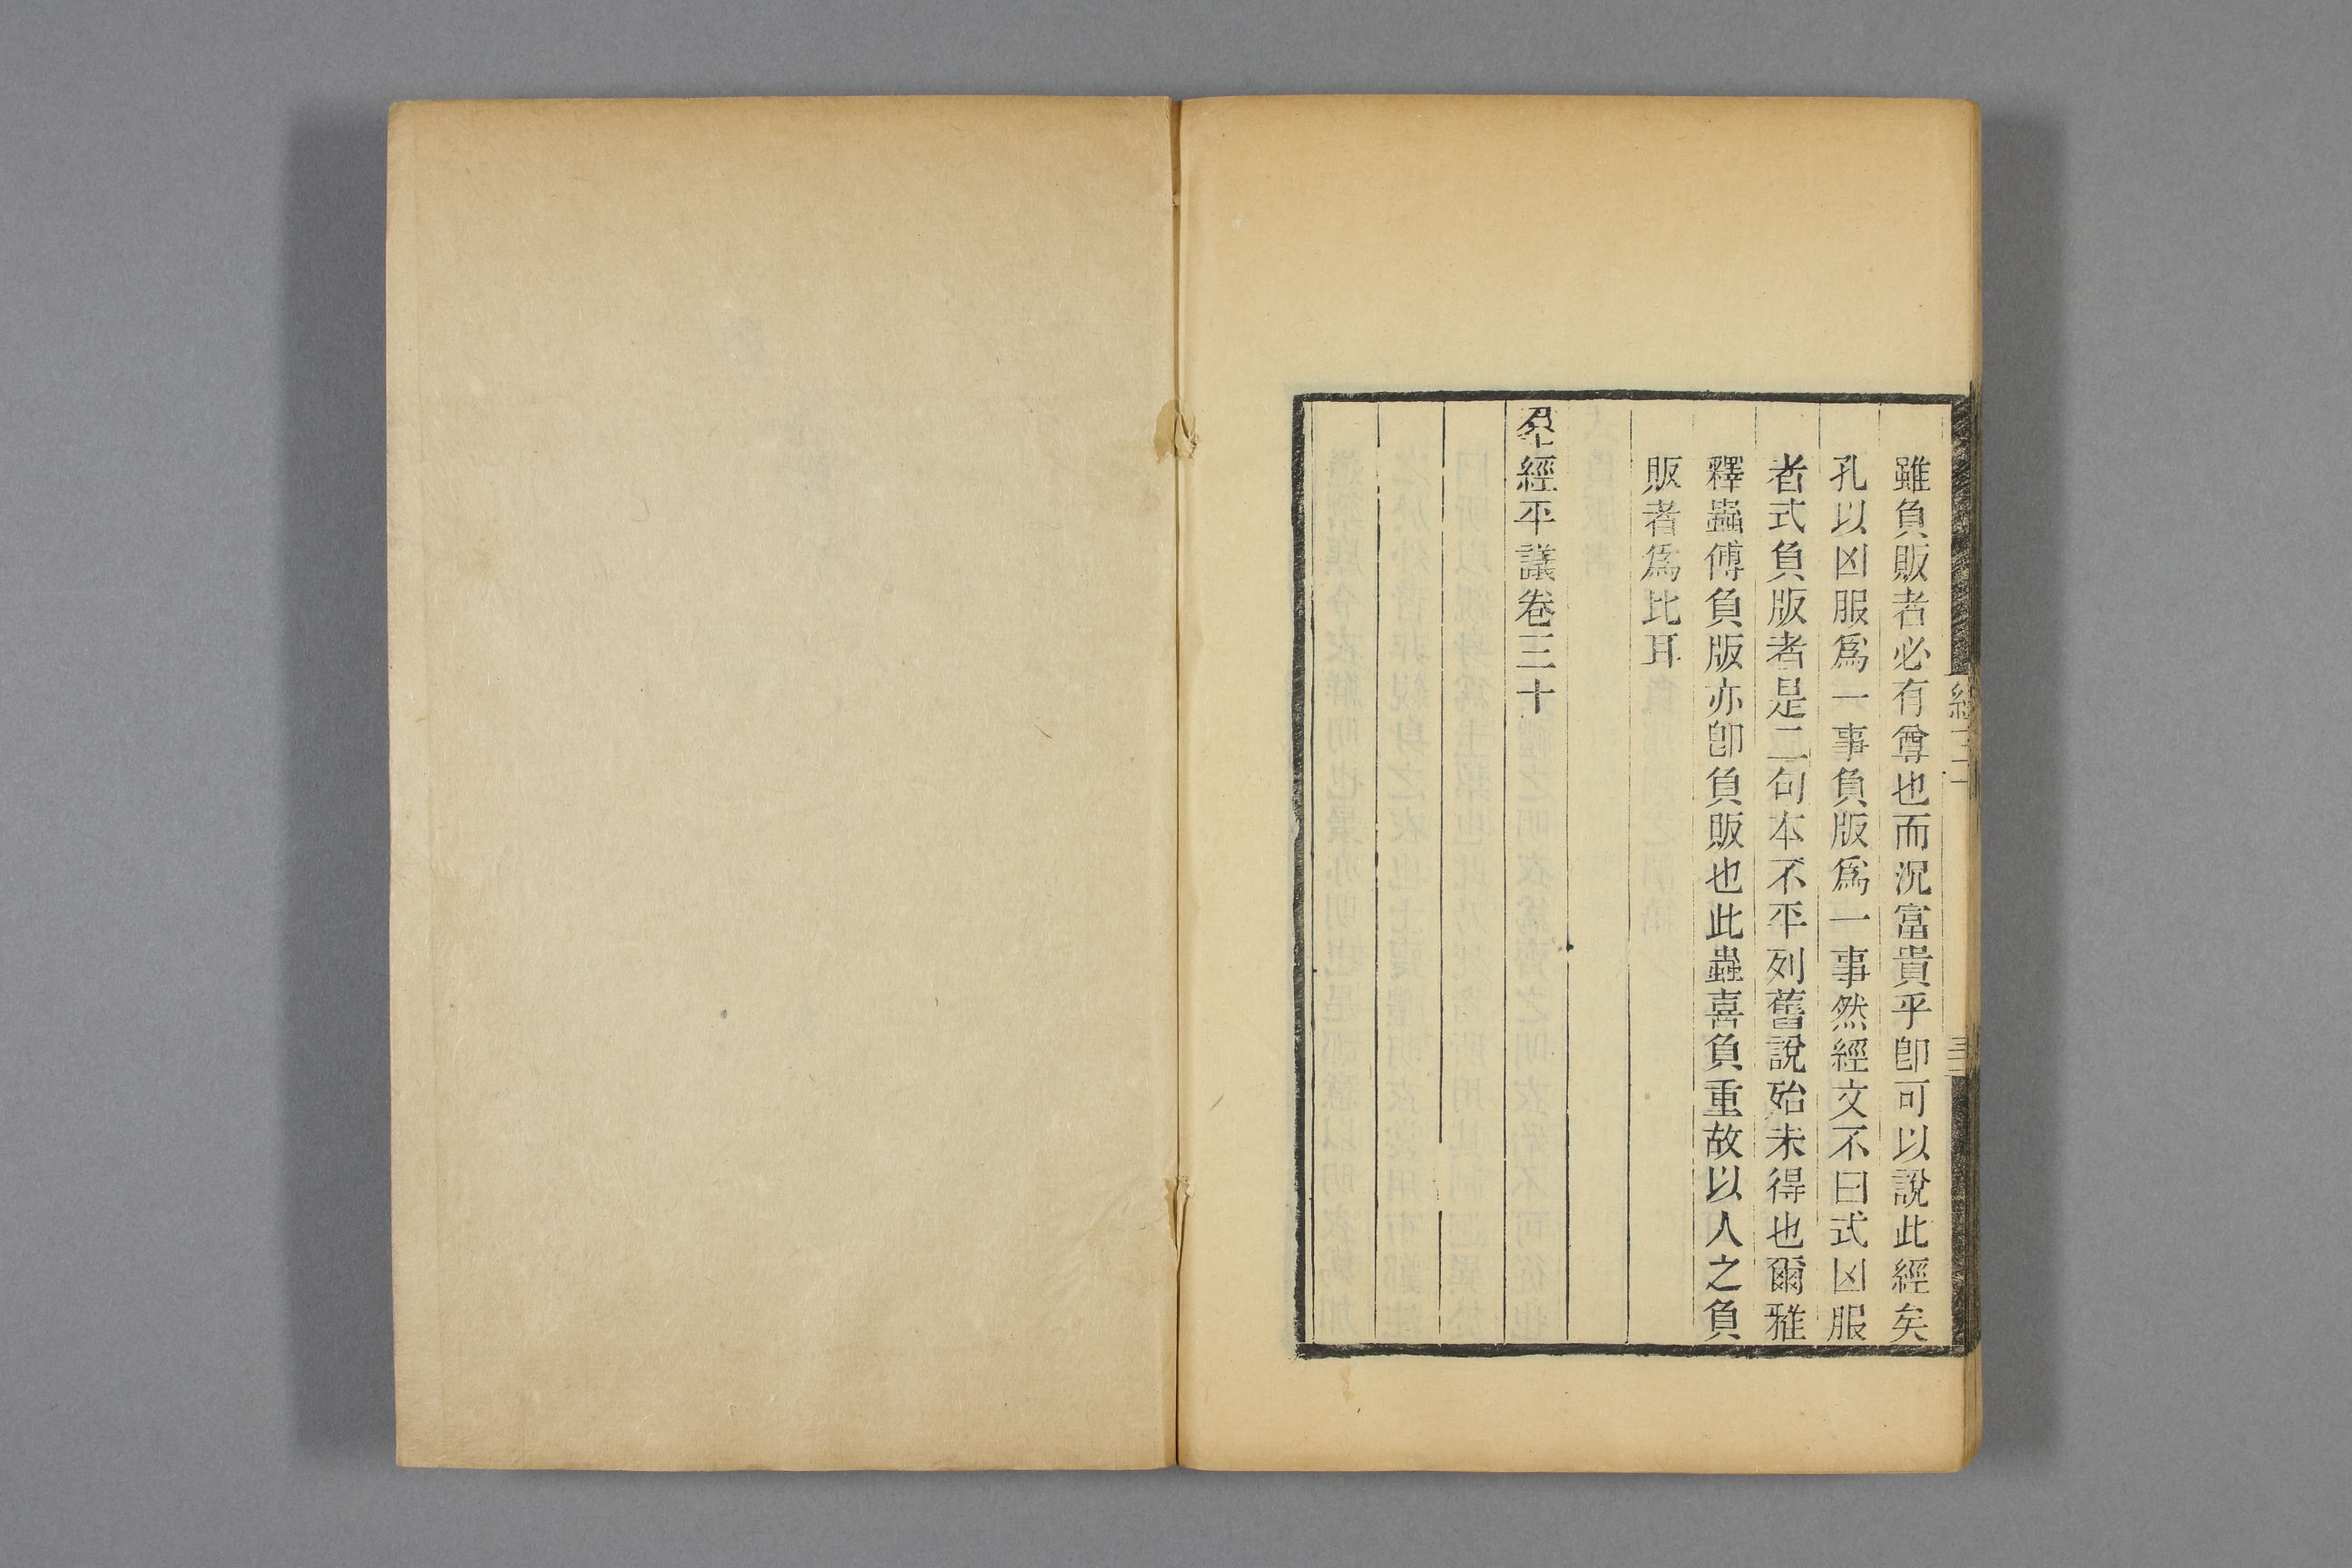 雖負販者必有尊也而況富貴乎卽可以說此經矣
孔以凶服爲一事負版爲一事然經文不曰式凶服
者式負版者是二句本不平列舊說殆未得也爾雅
釋蟲傅負版亦卽負販也此蟲喜負重故以人之負
販者爲比耳
羣經平議卷三十